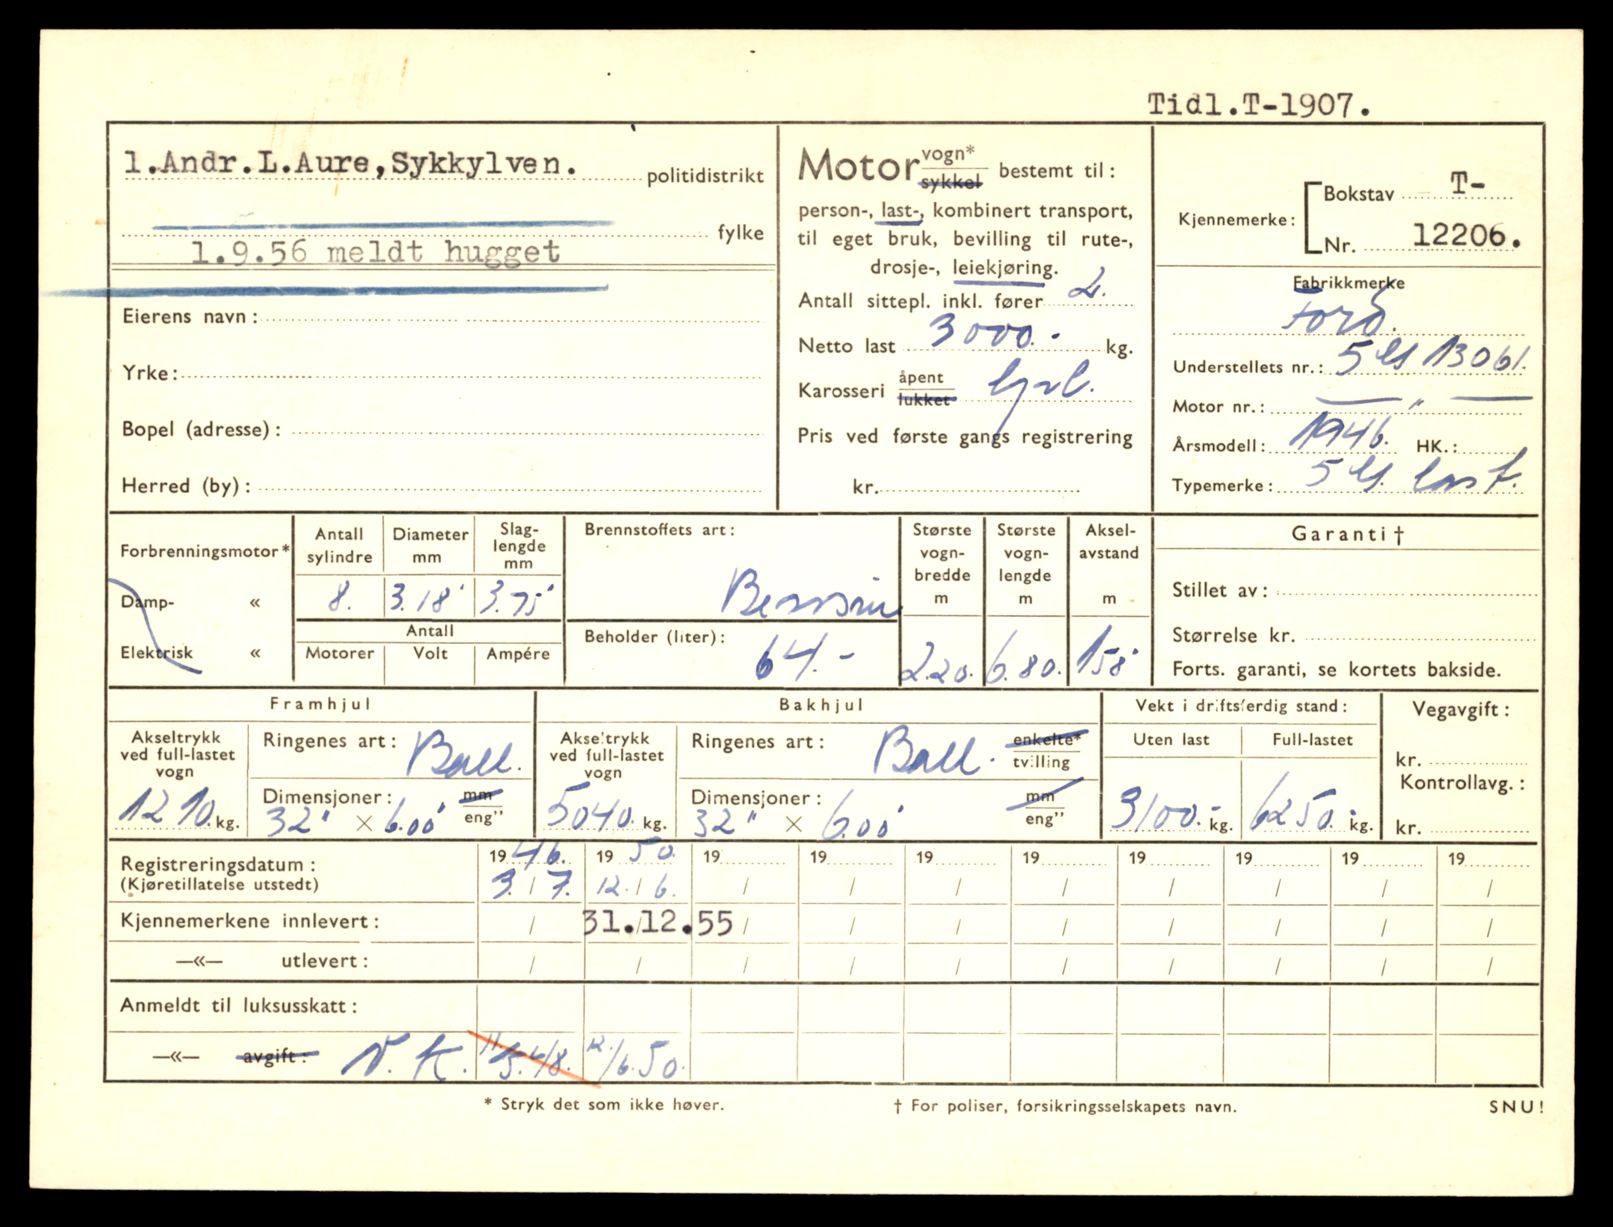 Tidl.T-1907.
1.Andr.L.Aure,Sykkylven. politidistrikt
fylke
1.9.56 meldt hugget
Eierens navn:
Yrke:
Bopel (adresse):
Herred (by):
Motor vogn* sykkel bestemt til:
person-, last-, kombinert transport,
til eget bruk, bevilling til rute-,
drosje-, leiekjøring.
Antall sittepl. inkl. fører 2.
Netto last 3000.- kg.
Karosseri åpent lukket
Pris ved første gangs registrering
kr.
Kjennemerke: Bokstav T-
Nr. 12206.
Fabrikkmerke
Ford.
Understellets nr.: 13061.
Motor nr.: — " —
Årsmodell: 1946. HK.:
Typemerke: last.
Forbrenningsmotor*
Damp- «
Elektrisk «
Antall sylindre
Diameter mm
Slag-lengde mm
8. 3.18" 3.75"
Antall
Motorer Volt Ampére
Brennstoffets art:
Bensin
Beholder (liter):
64.-
Største vogn-bredde m
Største vogn-lengde m
Aksel-avstand m
2.20. 6.80. 158"
Garanti†
Stillet av:
Størrelse kr.
Forts. garanti, se kortets bakside.
Framhjul
Akseltrykk ved full-lastet vogn
1210. kg.
Ringenes art: Ball.
Dimensjoner: mm
32" × 6.00 eng"
Bakhjul
Akseltrykk ved full-lastet vogn
5040. kg.
Ringenes art: Ball. enkelte* tvilling
Dimensjoner: mm
32" × 6.00 eng"
Vekt i driftsferdig stand:
Uten last Full-lastet
3100.- kg. 6250.- kg.
Vegavgift:
kr.
Kontrollavg.:
kr.
Registreringsdatum: 1946. 1950. 19 19 19 19 19 19 19 19
(Kjøretillatelse utstedt) 3./7. 12./6. / / / / / / / /
Kjennemerkene innlevert: / 31.12.55 / / / / / / / /
—«— utlevert: / / / / / / / / / /
Anmeldt til luksusskatt:
—«— avgift: V.K. 12./6.50.
* Stryk det som ikke høver.
† For poliser, forsikringsselskapets navn.
SNU!